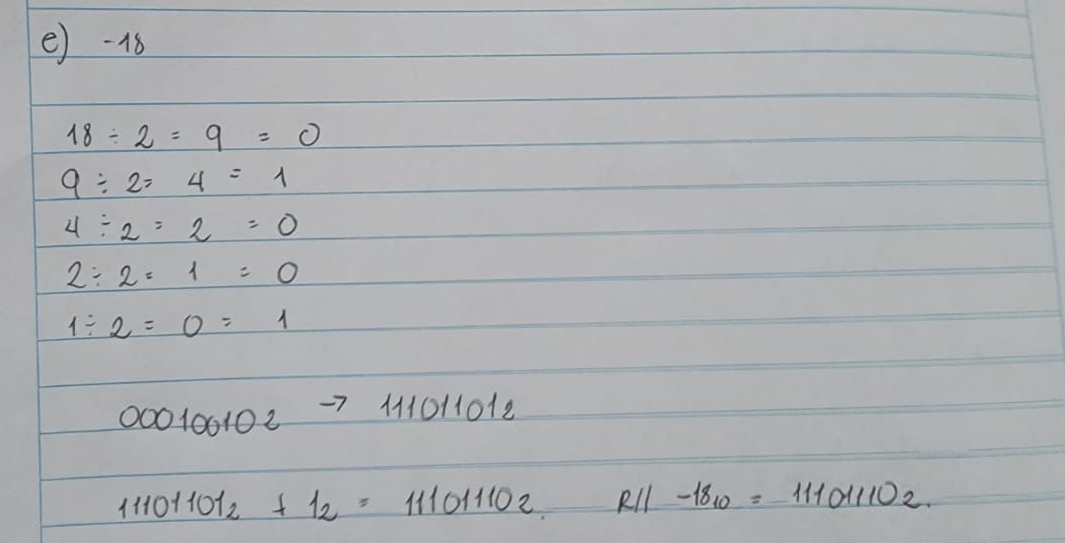 e) -18
18 ÷ 2 = 9 = 0
9 ÷ 2 = 4 = 1
4 ÷ 2 = 2 = 0
2 ÷ 2 = 1 = 0
1 ÷ 2 = 0 = 1
00010010₂ → 11101101₂
11101101₂ + 1₂ = 11101110₂. R// -18₁₀ = 11101110₂.